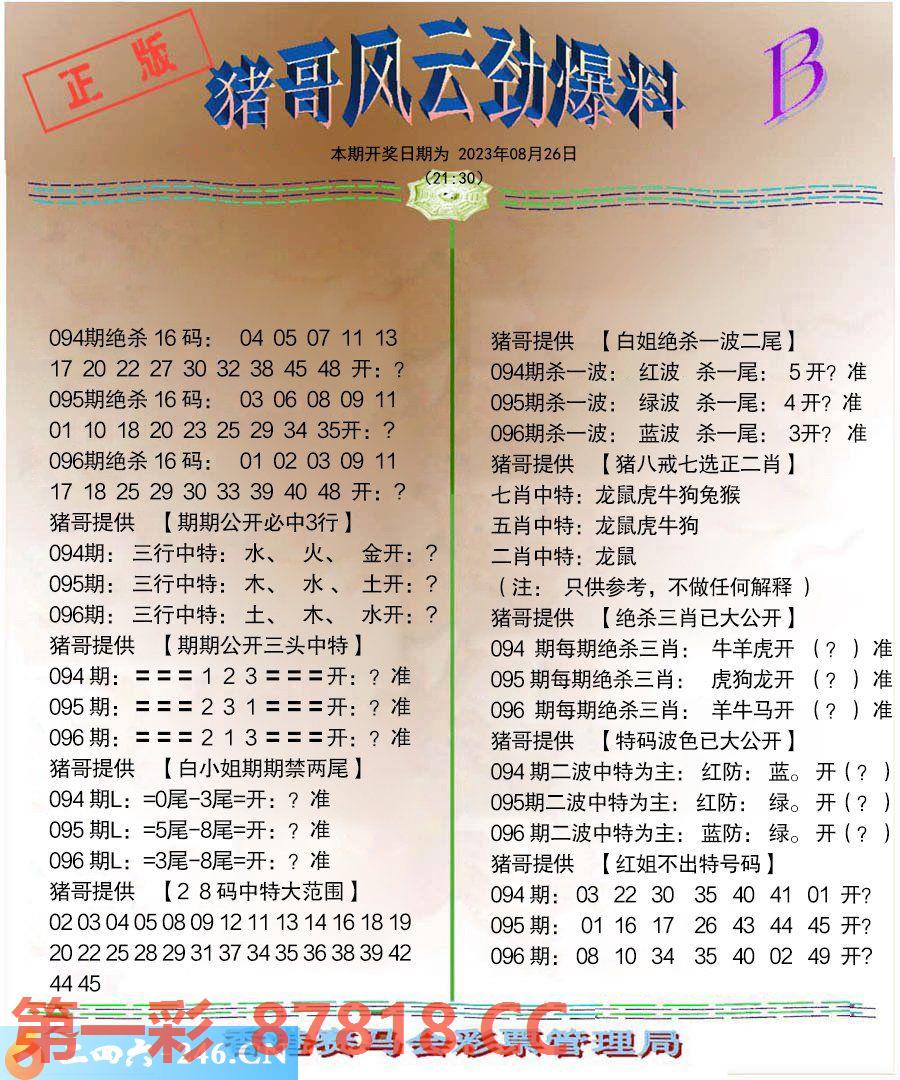 正版
猪哥风云劲爆料
B
本期开奖日期为 2023年08月26日
(21:30)
094期绝杀 16 码： 04 05 07 11 13
17 20 22 27 30 32 38 45 48 开：?
095期绝杀 16 码： 03 06 08 09 11
01 10 18 20 23 25 29 34 35开：?
096期绝杀 16 码： 01 02 03 09 11
17 18 25 29 30 33 39 40 48 开：?
猪哥提供 【期期公开必中3行】
094期： 三行中特：水、 火、 金开：?
095期： 三行中特：木、 水、土开：?
096期： 三行中特：土、 木、 水开：?
猪哥提供 【期期公开三头中特】
094 期：===１２３===开：? 准
095 期：===２３１===开：? 准
096 期：===２１３===开：? 准
猪哥提供 【白小姐期期禁两尾】
094 期L：=0尾-3尾=开：? 准
095 期L：=5尾-8尾=开：? 准
096 期L：=3尾-8尾=开：? 准
猪哥提供 【２８码中特大范围】
02 03 04 05 08 09 12 11 13 14 16 18 19
20 22 25 28 29 31 37 34 35 36 38 39 42
44 45
猪哥提供 【白姐绝杀一波二尾】
094期杀一波： 红波 杀一尾： 5 开? 准
095期杀一波： 绿波 杀一尾： 4 开? 准
096期杀一波： 蓝波 杀一尾： 3开? 准
猪哥提供 【猪八戒七选正二肖】
七肖中特：龙鼠虎牛狗兔猴
五肖中特：龙鼠虎牛狗
二肖中特：龙鼠
（注： 只供参考，不做任何解释 ）
猪哥提供 【绝杀三肖已大公开】
094 期每期绝杀三肖： 牛羊虎开 （? ）准
095 期每期绝杀三肖： 虎狗龙开 （? ）准
096 期每期绝杀三肖： 羊牛马开 （? ）准
猪哥提供 【特码波色已大公开】
094 期二波中特为主： 红防： 蓝。 开（? ）
095期二波中特为主： 红防： 绿。 开（? ）
096 期二波中特为主： 蓝防：绿。 开（? ）
猪哥提供 【红姐不出特号码】
094 期： 03 22 30 35 40 41 01 开?
095 期： 01 16 17 26 43 44 45 开?
096 期： 08 10 34 35 40 02 49 开?
第一彩 87818.CC
二四六 246.CN
香港赛马会彩票管理局